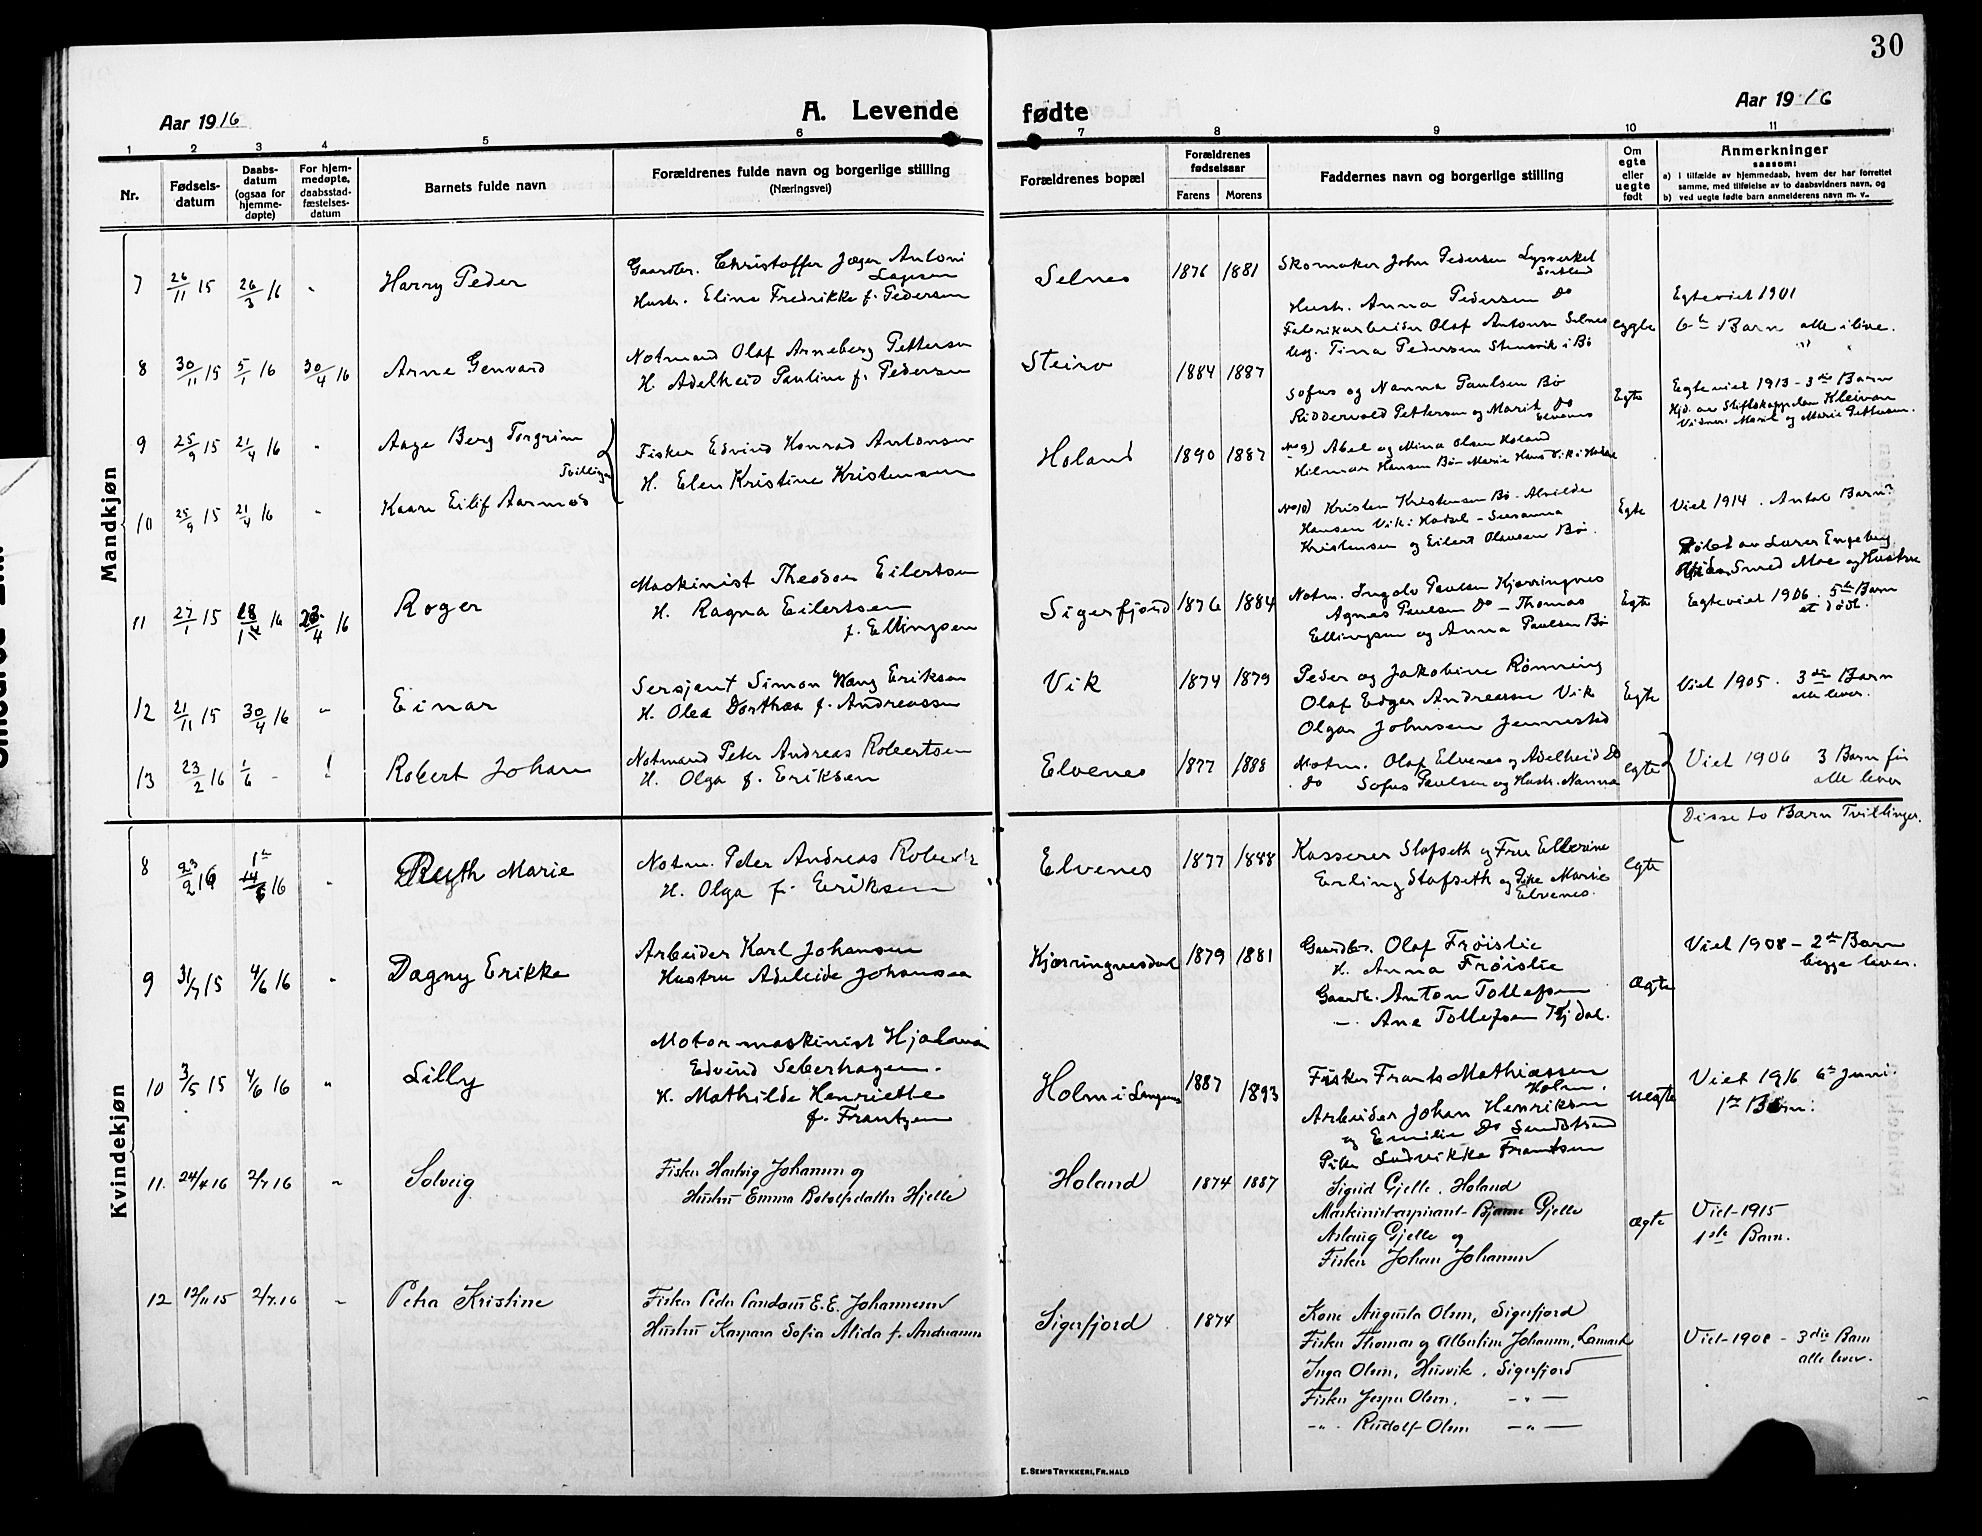 30
Aar 1916
A. Levende
fødte
Aar 1916
1 2 3 4 5 6 7 8 9 10 11
Nr.
Fødsels-
datum
Daabs-
datum
(ogsaa for
hjemme-
døpte)
For hjem-
medøpte,
daabsstad-
fæstelses-
datum
Barnets fulde navn
Forældrenes fulde navn og borgerlige stilling
(Næringsvei)
Forældrenes bopæl
Forældrenes
fødselsaar
Farens Morens
Faddernes navn og borgerlige stilling
Om
egte
eller
uegte
født
Anmerkninger
saasom:
a) i tilfælde av hjemmedaab, hvem der har forrettet
samme, med tilføielse av to daabsvidners navn, og
b) ved uegte fødte barn anmelderens navn m. v.
Mandkjøn
7 26/11 15 26/3 16 "
Harry Peder
Gaardbr. Christoffer Jæger Antoni
Hustr. Eline Fredrikke f. Pedersen
Selnes 1876 1881
Skomaker John Pedersen
Hustr. Anna Pedersen Do
Fabrikarbeider Olaf Antonsen Selnes
Ug. Tina Pedersen Steinsvik i Bø
egte
Egteviet 1901
6te Barn alle ilive.
8 30/11 15 5/1 16 30/4 16
Arne Genvard
Notmand Olaf Arneberg Pettersen
H. Adelheid Pauline f. Pedersen
Steiro 1884 1887
Sofus og Nanna Paulsen Bø
Riddervold Pettersen og Marit Do
Elvenes
Egte
Egteviet 1913 - 3die Barn
Hjd. av Stiftskappelan Kleivan
Vidner: Marit og Marie Pettersen.
9 25/9 15 21/4 16 "
Aage Berg Torgrim
Tvillinger
Fisker Edvind Konrad Antonsen
H. Elen Kristine Kristensen
Holand 1890 1887
No 9) Abel og Mina Olsen Holand
Hilmar Hansen Bø - Marie Hans Vik i Hadsel
10 25/9 15 21/4 16 "
Kaare Eilif Aarmod
No 10) Kristen Kristensen Bø - Alvilde
Hansen Vik i Hadsel - Susanna
Kristensen og Eilert Olausen Bø.
Egte
Viet 1914. Antal Barn?
11 27/1 15 28/1 16 23/4 16
Roger
Maskinist Theodor Eilertsen
H. Ragna Eilertsen
f. Ellingsen
Sigerfjord 1876 1884
Notm. Ingolv Paulsen Kjørringnes
Agnes Paulsen Do - Thomas
Ellingsen og Anna Paulsen Bø
Egte
Døbt av Lærer Engeberg
Smed Moe og Hustru
Egteviet 1906. 5te Barn
et dødt.
12 21/11 15 30/4 16 "
Einar
Sersjant Simon Wang Eriksen
H. Olea Dorthea f. Andreassen
Vik 1874 1879
Peder og Jakobine Rønning
Olaf Edgar Andreassen Vik
Olgar Johnsen Jennestad
Egte
Viet 1905. 3die Barn
alle lever.
13 23/2 16 1/6 -
Robert Johan
Notmand Peter Andreas Robertsen
H. Olga f. Eriksen
Elvenes 1877 1888
Notm. Olaf Elvenes og Adelheid Do
Do Sofus Paulsen og Hustr. Nanna
egte
Viet 1906 3 Barn før
alle lever
Disse to Barn Tvillinger.
Kvindekjøn
8 23/2 16 16 "
Ruth Marie
Notm. Peter Andreas Roberts
H. Olga f. Eriksen
Elvenes 1877 1888
Kasserer Stafseth og Fru Ellevine
Erling Stafseth og Pike Marie
Elvenes.
egte
9 31/7 15 4/6 16 "
Dagny Erikke
Arbeider Karl Johansen
Hustru Adeleide Johansen
Kjørringnesdal 1879 1881
Gaardbr. Olaf Frøislie
H. Anna Frøislie
Gaardb. Anton Tollefsen
-. Ane Tollefsen Kj dal.
Ægte
Viet 1908 - 2det Barn
begge lever.
10 3/5 15 4/6 16 "
Lilly
Motormaskinist Hjalmar
Edvind Seberhagen.
H. Mathilde Henriette
f. Frantzen
Holm i Langenes 1887 1893
Fisker Frants Mathiassen
Holm.
Arbeider Johan Henriksen
og Emilie Do Sundstrand
Pike Ludvikke Frantsen
uegte
Viet 1916 6te Juni.
1ste Barn.
11. 24/4 16 2/7 16 "
Solveig
Fisker Hartvig Johansen og
Hustru Emma Rotolfsdatter Hjelle
Holand 1874 1887
Sigrid Gjelle, Holand
Maskinistaspirant Bjarne Gjelle
Aslaug Gjelle og
Fisker Johan Johansen
ægte
Viet 1915
1ste Barn.
12 12/11 15 2/7 16 "
Petra Kristine
Fisker Peder Pandaus E. E. Johannesen
Hustru Kaspara Sofia Alida f. Andreassen
Sigerfjord 1874
Kone Augusta Olsen, Sigerfjord
Fisker Thomas og Albertine Johansen, Lamark
Inga Olsen, Husvik, Sigerfjord
Fisker Jesper Olsen, - " -
- " - Rudolf Olsen - " -
Viet 1908 - 3die Barn
alle lever.
E. SEM'S TRYKKERI, FR. HALD